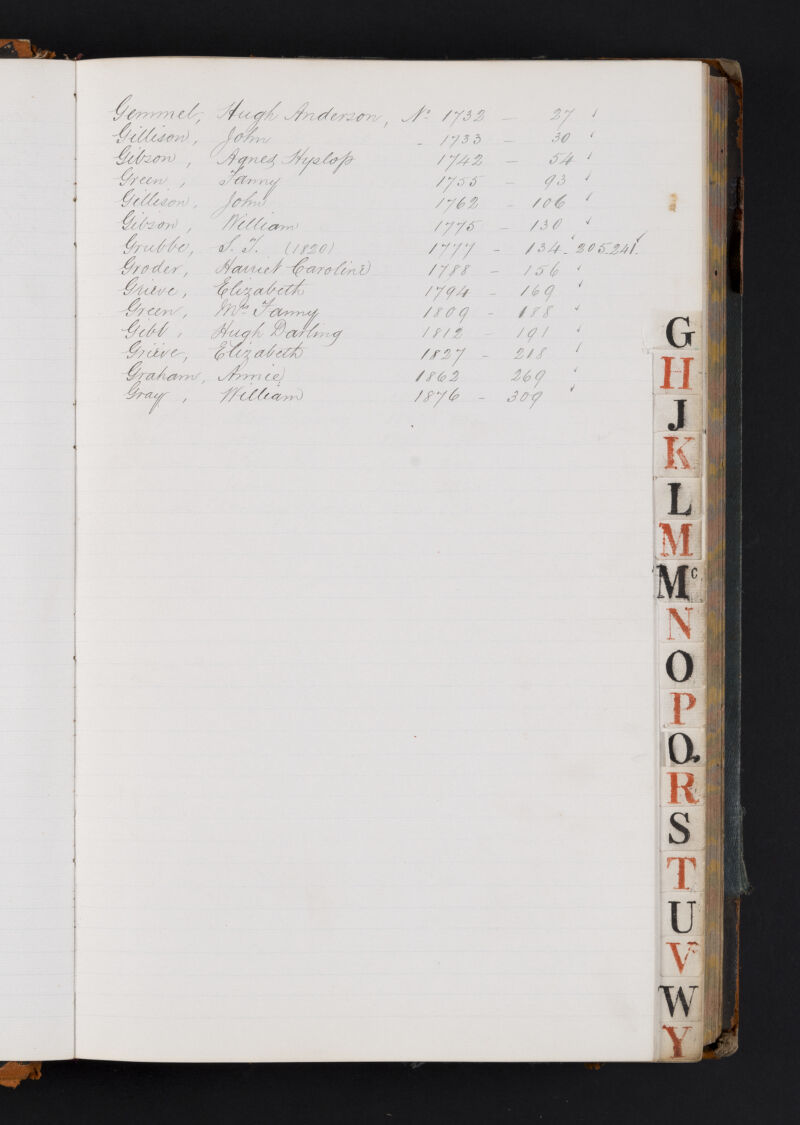 Gemmel, Hugh Anderson, No 1732 — 27 ✓
Gillison, John - 1733 — 30 ✓
Gibson, Agnes Hyslop 1742 — 54 ✓
Green, Fanny 1755 — 93 ✓
Gillison, John 1762 — 106 ✓
Gibson, William 1775 — 130 ✓
Grubbe, S. T. (1820) 1777 — 134. 205.241.
Groder, Harriet Caroline 1788 — 156 ✓
Grieve, Elizabeth 1794 — 169 ✓
Green, Mrs Fanny 1809 — 188 ✓
Gibb, Hugh Darling 1812 — 191 ✓
Grieve, Elizabeth 1827 — 218 ✓
Graham, Annie 1862 269 ✓
Gray, William 1876 — 309 ✓
G
H
J
K
L
M
Mc
N
O
P
Q.
R
S
T
U
V
W
Y